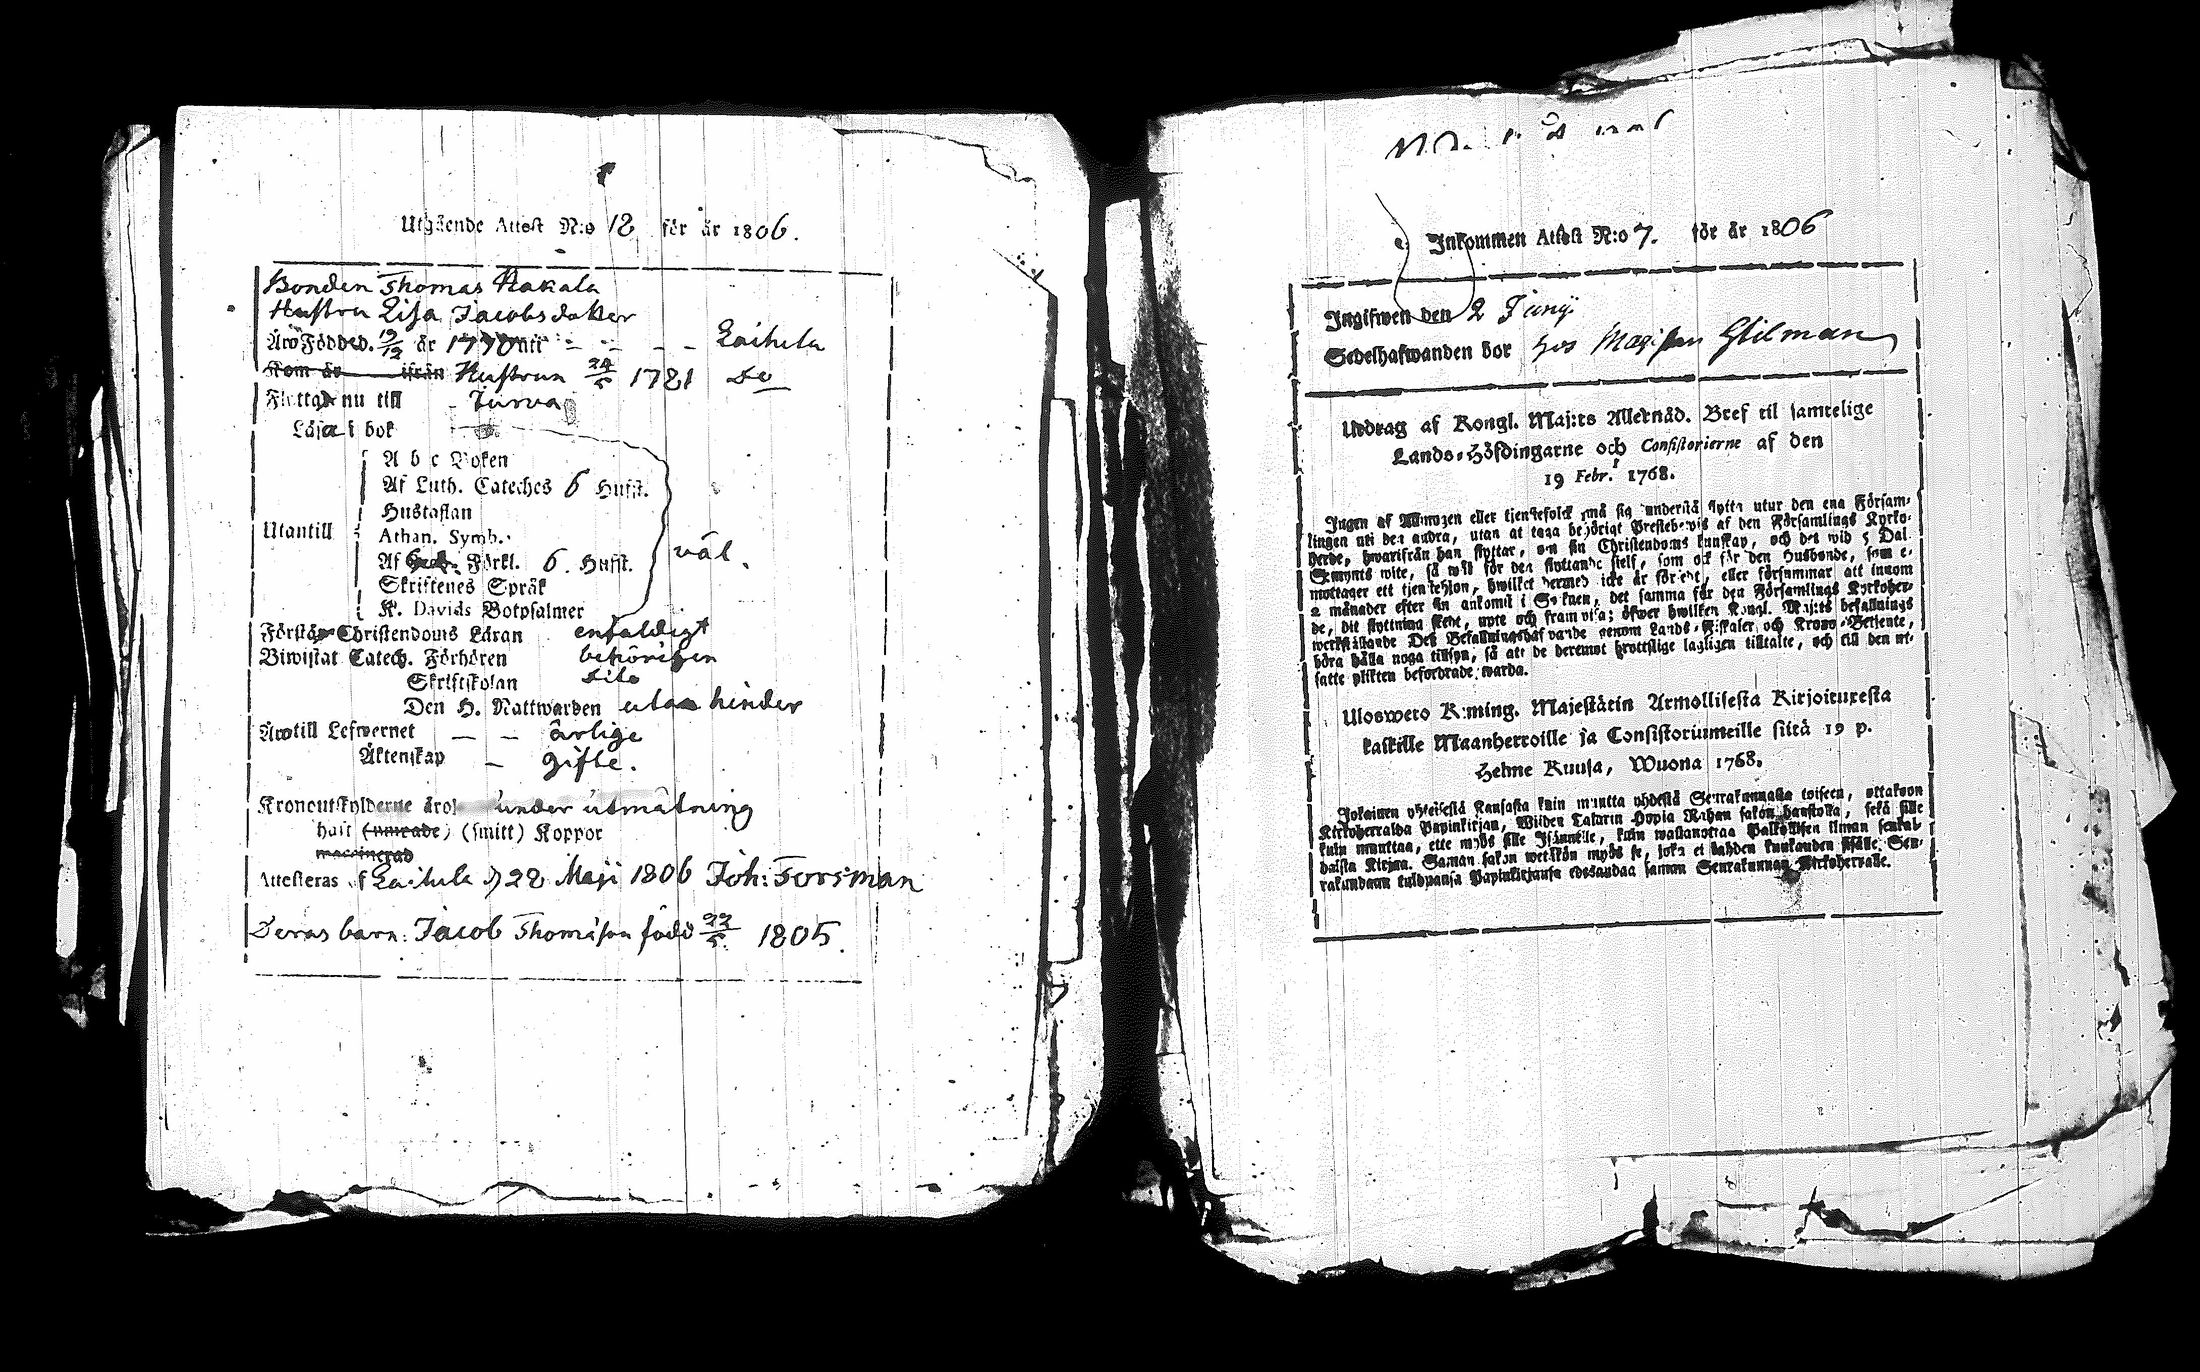 Utgående Attest N:o 18 för år 1806.
Bonden Thomas Hakala
Hustru Lisa Jacobsdotter
Äro Född d. 19/12 år 1770 uti - - - - Laihela
Kom år ifrån Hustrun 24/5 1781 do
Flyttar nu till - Jurva
Läsa i bok
A b c Boken
Af Luth. Cateches 6 Hufst.
Hustaflan
Utantill
Athan. Symb.
Af Förkl. 6. Hufst.
väl.
Skriftenes Språk
K. Davids Botpsalmer
Förstå Christendoms Läran enfaldigt
Biwistat Catech. Förhören behörigen
Skriftskolan dito
Den H. Nattwarden utan hinder
Äro till Lefwernet - - ärlige
Äktenskap - gifte.
Kronoutskylderne äro under utmätning
haft (ympade) (smitt) Koppor
vaccinerad
Attesteras af Laihela d 28 Maji 1806 Joh: Forsman
Deras barn: Jacob Thomasson född 22/5. 1805.
Inkommen Attest N:o 7. för år 1806
Ingifwen den 2 Junij
Sedelhafwanden bor hos Magister Gtilman
Utdrag af Kongl. Maj:ts Allernåd. Bref til samtelige
Lands-Höfdingarne och Consistorierne af den
19 Febr. 1768.
Ingen af Allmogen eller tjenstefolck må sig understå flytta utur den ena Församlingen
uti den andra, utan at taga behörigt Prestebewis af den Församlings Kyrkoherde,
hwarifrån han flyttar, om sin Christendoms kunskap, och det wid 5 Dal.
S:mynts wite, så wäl för den flyttande sielf, som ock för den Husbonde, som emottager
ett tjenstehjon, hwilket dermed icke är försedt, eller försummar att innom
2 månader efter sin ankomst i Soknen, det samma för den Församlings Kyrkoherde,
dit flyttning skedt, upte och framwisa; öfwer hwilken Kongl. Maj:ts befallnings
werkställande Dess Befallningshafwande genom Lands-Fiskaler och Krono-Betjente,
böra hålla noga tillsyn, så att de deremot brottslige lagligen tilltalte, och till den utsatte
plikten befordrade warda.
Uloswero K:ning. Majestätin Armollisesta Kirjoituxesta
kaikille Maanherroille ja Consistoriumeille siitä 19 p.
Helme Kuusa, Wuona 1768.
Jokainen yhteisestä Kansasta kuin muutta yhdestä Seurakunnasta toiseen, ottakoon
Kirkoherralda Papinkirjan, Wiiden Talarin Hopia Rahan sakon haastolla, sekä sille
kuin muuttaa, ette myös sille Isännelle, kuin wastanottaa Palkollisen ilman senkaldaista
Kirjaa. Saman sakon wetäkön myös se, joka ei kahden kuukauden sisälle Seurakundaan
tuldyansa Papinkirjansa edesandaa saman Seurakunnan Kirkoherralle.